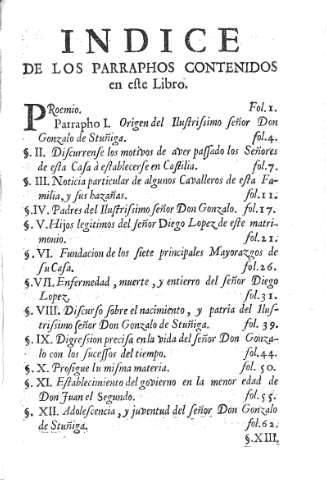 INDICE
DE LOS PARRAPHOS CONTENIDOS
en eſte Libro.
PRoemio. Fol.1.
Parrapho I. Origen del Iluſtriſsimo ſeñor Don
Gonzalo de Stuñiga. fol.4.
§. II. Diſcurrenſe los motivos de aver paſſado los Señores
de eſta Caſa à eſtablecerſe en Caſtilla. fol.7.
§. III. Noticia particular de algunos Cavalleros de eſta Fa-
milia, y ſus hazañas. fol.11.
§.IV. Padres del Iluſtriſsimo ſeñor Don Gonzalo. fol.17.
§.V. Hijos legitimos del ſeñor Diego Lopez, de eſte matri-
monio. fol.21.
§.VI. Fundacion de los ſiete principales Mayorazgos de
ſu Caſa. fol.26.
§.VII. Enfermedad, muerte, y entierro del ſeñor Diego
Lopez. fol.31.
§.VIII. Diſcurſo ſobre el nacimiento, y patria del Iluſ-
triſsimo ſeñor Don Gonzalo de Stuñiga. fol. 39.
§.IX. Digreſsion preciſa en la vida del ſeñor Don Gonza-
lo con los ſuceſſos del tiempo. fol.44.
§.X. Proſigue la miſma materia. fol. 50.
§.XI. Eſtablecimiento del govierno en la menor edad de
Don Juan el Segundo. fol.55.
§.XII. Adoleſcencia, y juventud del ſeñor Don Gonzalo
de Stuñiga. fol.62.
§.XIII.